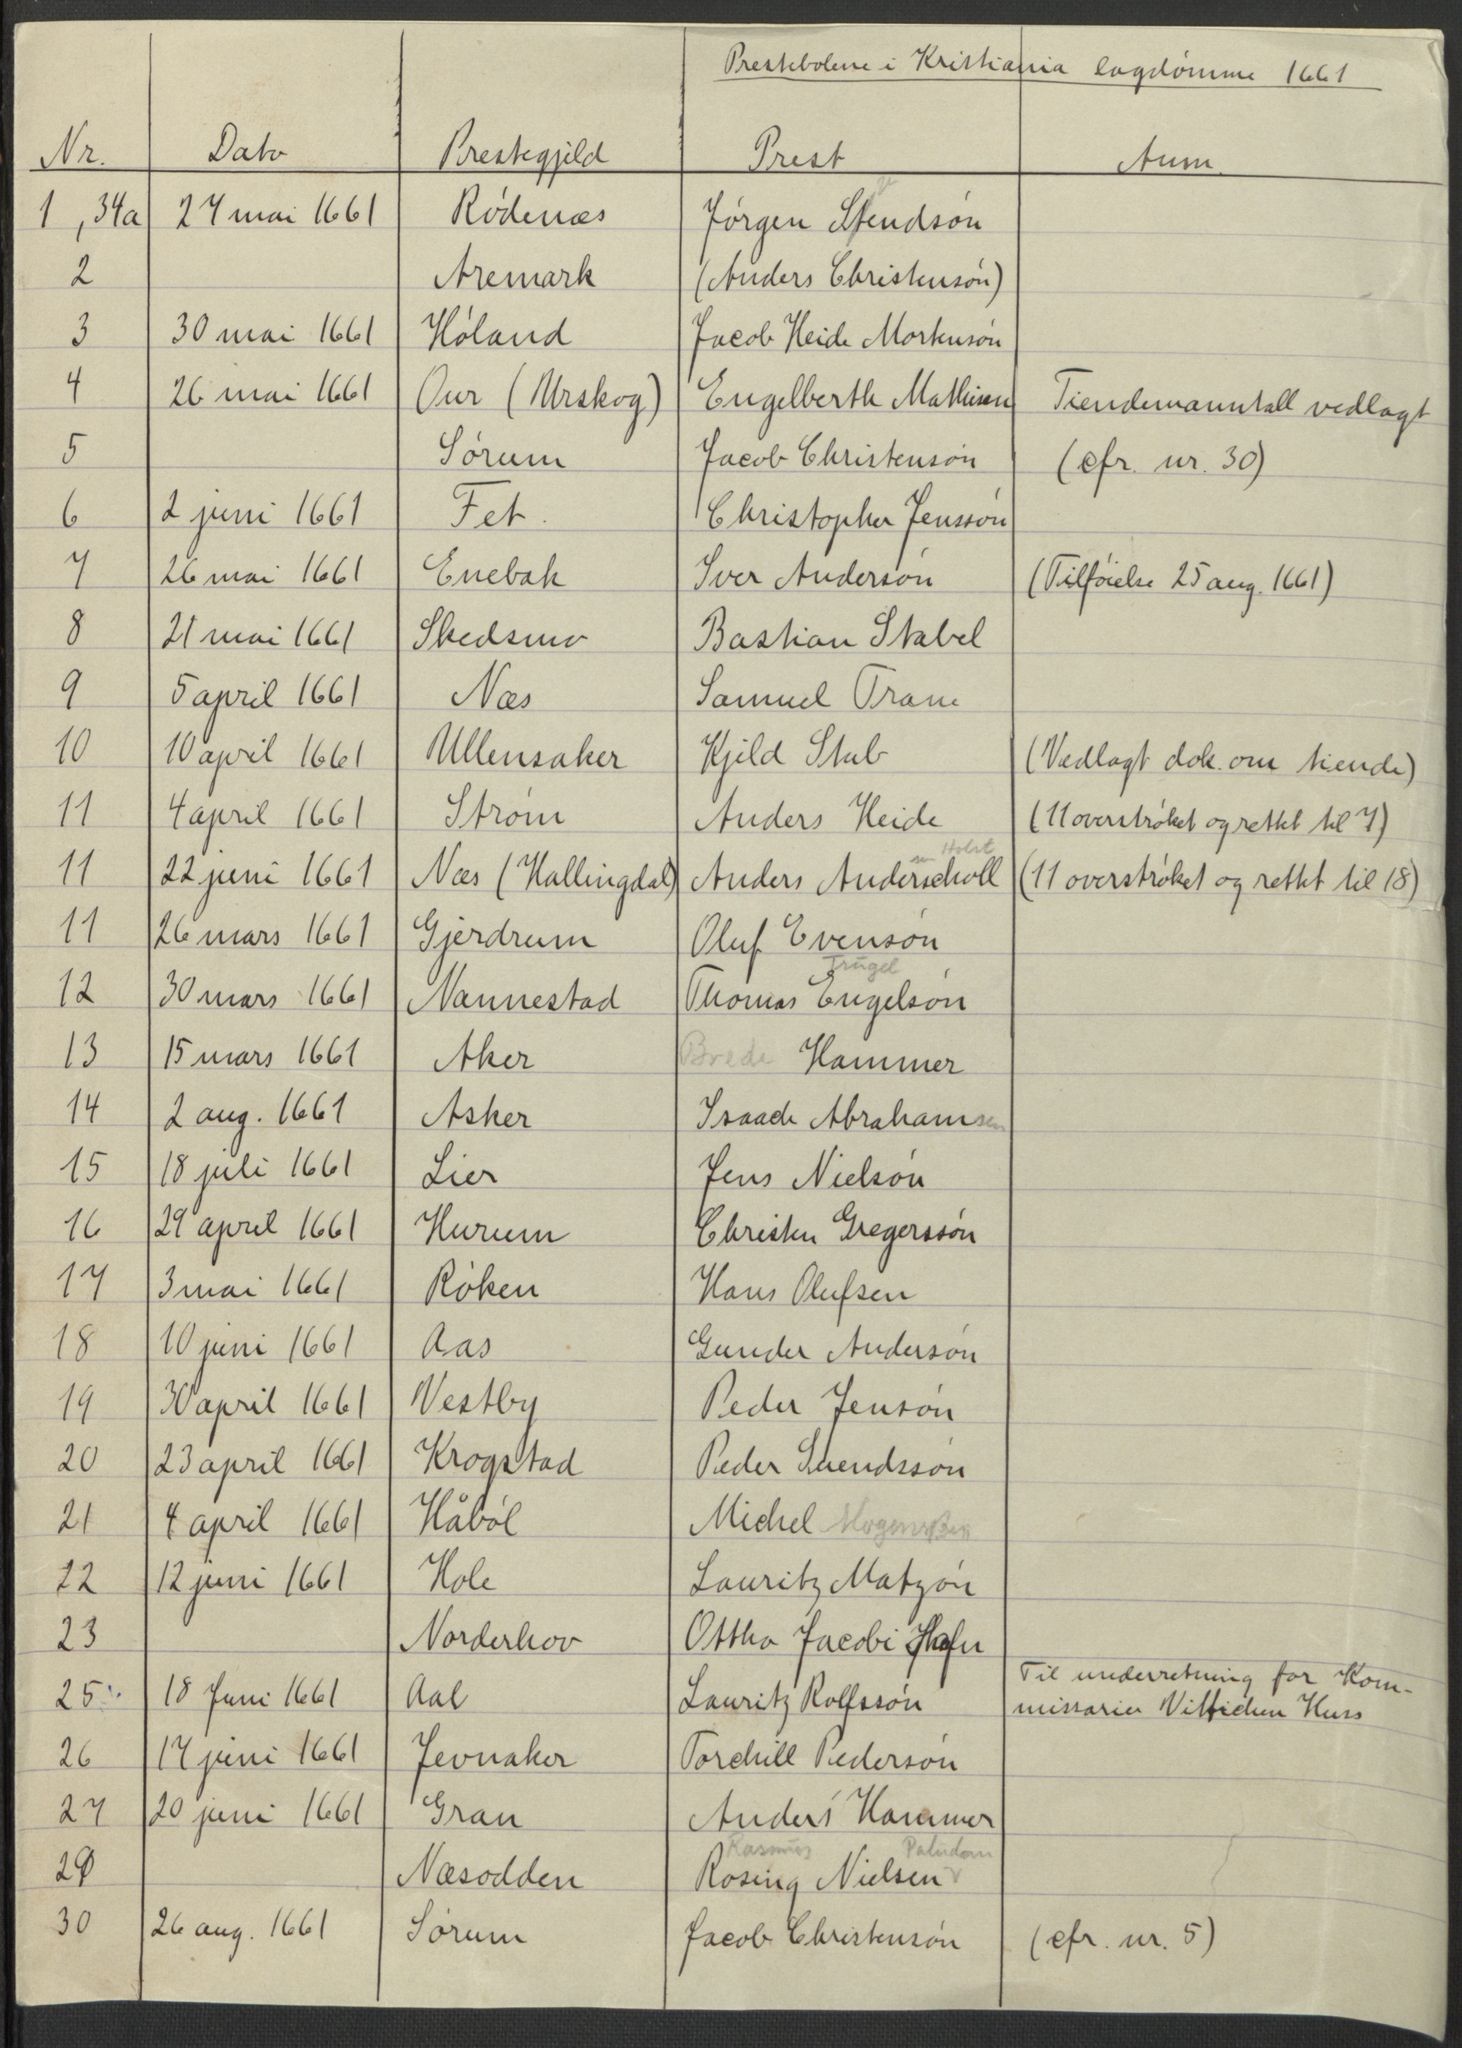 Prestebolene i Kristiania lagdømme 1661
Nr. Dato Prestegjeld Prest Anm.
1, 34a 27 mai 1661 Rödenæs Jörgen Stendsön
2 Aremark (Anders Christensön)
3 30 mai 1661 Höland Jacob Heide Mortensön
4 26 mai 1661 Our (Urskog) Engelberth Mathisen Tiendemanntall vedlagt
5 Sörum Jacob Christensön (cfr. nr. 30)
6 2 juni 1661 Fet. Christopher Jenssön
7 26 mai 1661 Enebak Iver Andersön (Tilföielse 25 aug. 1661)
8 21 mai 1661 Skedsmo Bastian Stabel
9 5 april 1661 Næs Samuel Trane
10 10 april 1661 Ullensaker Kjeld Stub (Vedlagt dok. om tiende)
11 4 april 1661 Ström Anders Heide (11 overströket og rettet til 7)
sen Holst
11 22 juni 1661 Næs (Hallingdal) Anders Anderscholl (11 overströket og rettet til 18)
11 26 mars 1661 Gjerdrum Oluf Evensön
Trugel
12 30 mars 1661 Nannestad Thomas Engelsön
13 15 mars 1661 Aker Brede Hammer
14 2 aug. 1661 Asker Isaach Abrahamsen
15 18 juli 1661 Lier Jens Nielsön
16 29 april 1661 Hurum Christen Gregerssön
17 3 mai 1661 Röken Hans Olufsen
18 10 juni 1661 Aas Gunder Andersön
19 30 april 1661 Vestby Peder Jensön
20 23 april 1661 Krogstad Peder Suendssön
21 4 april 1661 Håböl Michel
22 12 juni 1661 Hole Lauritz Matzön
23 Norderhov Ottho Jacobi
25 18 Juni 1661 Aal Lauritz Rolfssön Til underretning for Kom-
missarier Vittichen Huss
26 17 juni 1661 Jevnaker Torchill Pedersön
27 20 juni 1661 Gran Anders Hammer
Rasmus Paludan
29 Næsodden Rosing Nielsen
30 26 aug. 1661 Sörum Jacob Christensön (cfr. nr. 5)